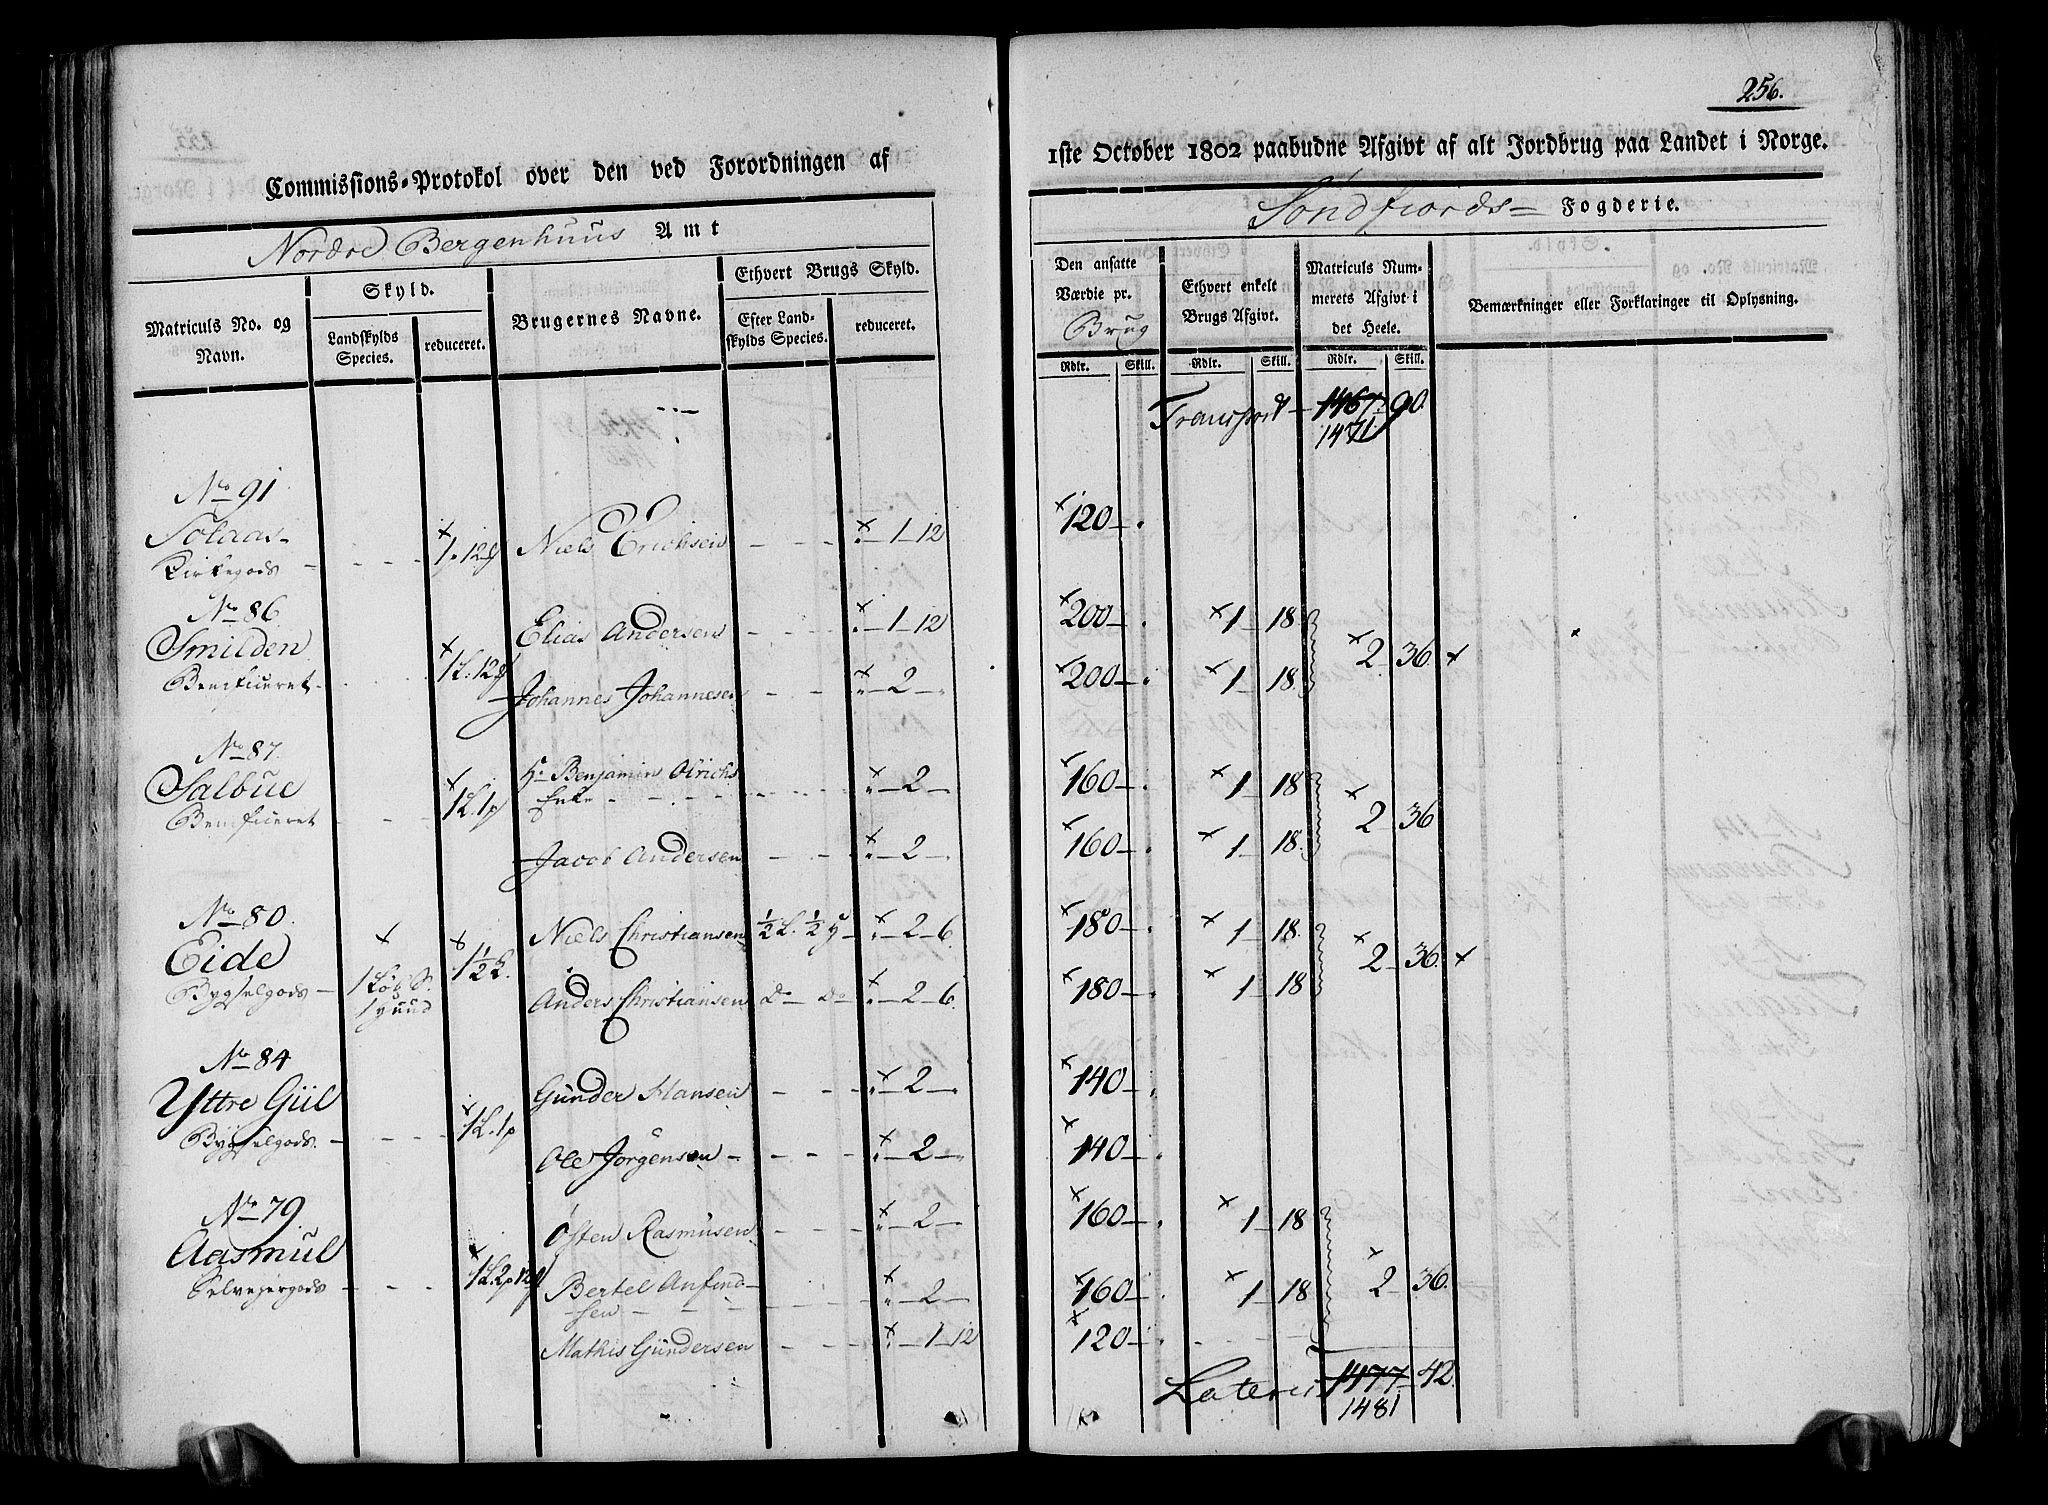 256.
Commissions-Protokol over den ved Forordningen af 1ste October 1802 paabudne Afgivt af alt Jordbrug paa Landet i Norge.
Nordre Bergenhuus Amt
Söndfiords Fogderie.
Matriculs No. og Navn.
Skyld.
Landskylds Species.
reduceret.
Brugernes Navne.
Ethvert Brugs Skyld.
Efter Landskylds Species.
reduceret.
Den ansatte Værdie pr. Brug
Ethvert enkelt Brugs Afgivt.
Matriculs Nummerets Afgivt i det Heele.
Bemærkninger eller Forklaringer til Oplysning.
Rdlr. Skill. Rdlr. Skill. Rdlr. Skill.
Transport 1467 90.
1471
No 91
Solaas
Kirkegods
Niels Erichsen - 1 - 12 120
No 86
Smilden
Beneficeret
Elias Andersen - 1 - 12 200 1 18
2 36.
Johannes Johannesen - 2 - 200 1 18
No 87.
Salbue
Beneficeret
1 L. 1 p
Hr. Benjamin Olrichs
Enke - 2 - 160 1 18
2 36
Jacob Andersen - 2 - 160 1 18.
No 80.
Eide
Bygselgods
1 Løb S.
1 Huud
1½ L.
Niels Christiansen ½ L. ½ H - 2 - 6. 180 1 18.
2 36.
Anders Christiansen Do Do - 2 - 6. 180 1 18
No 84
Yttre Giil
Bygselgods.
1 L. 1 p
Gunder Hansen - 2 - 140
Ole Jörgensen - 2 - 140
No 79.
Aasmul
Selvejergods
Østen Rasmusen - 2 - 160 1 18
2 36.
Bertel Anfind-
sen - 2 - 160 1 18
Mathis Gundersen - 1 - 12 120
Lateris 1477 42.
1481